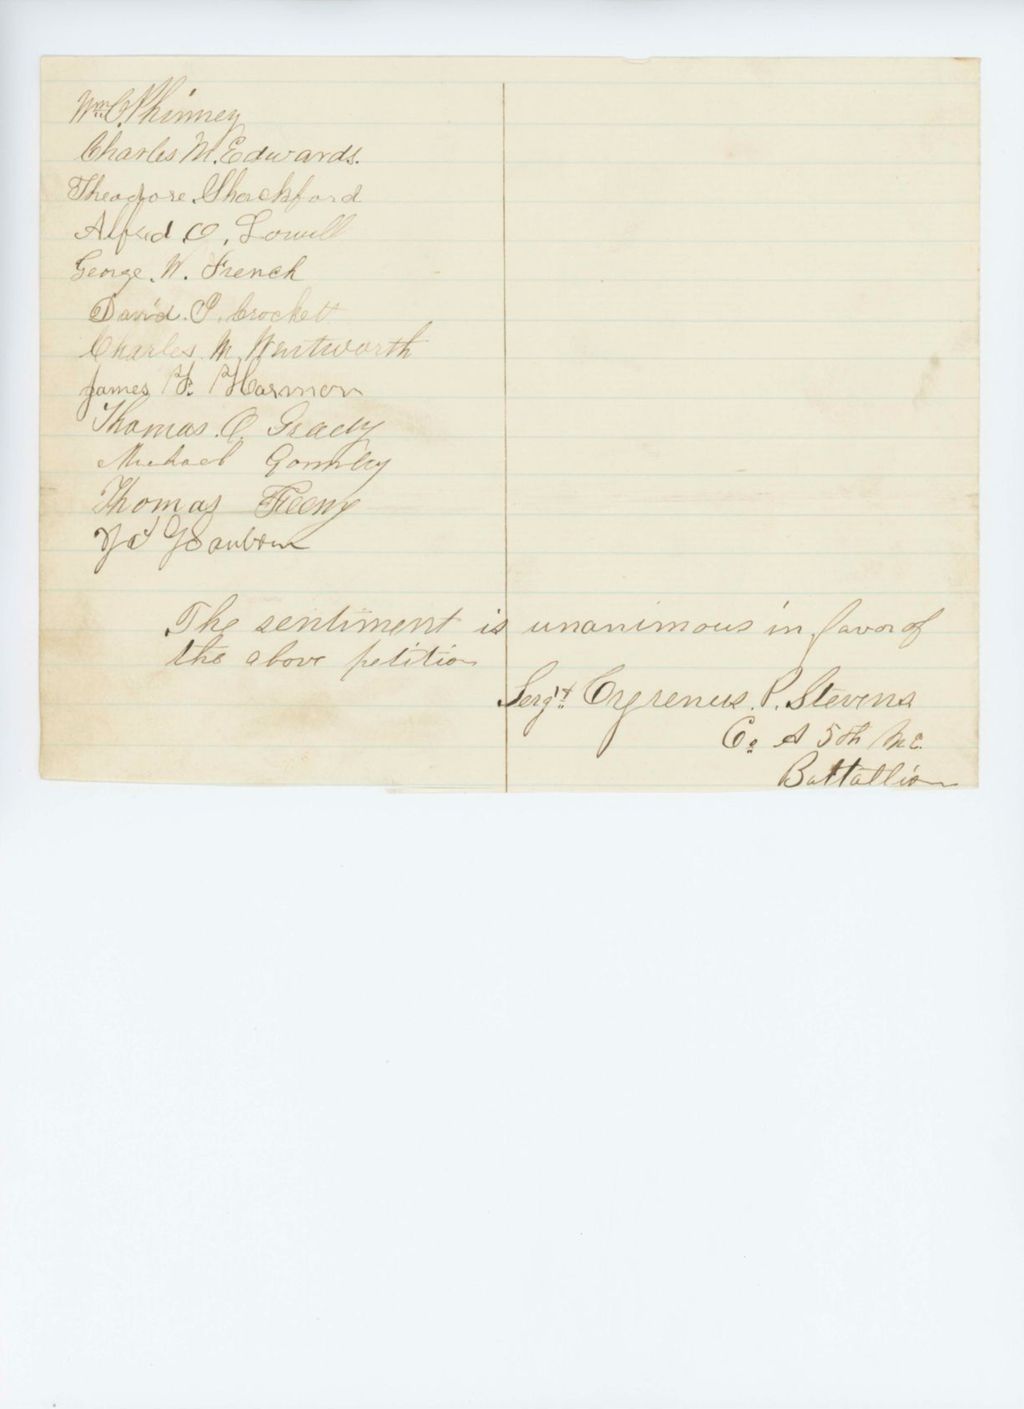 Wm. C. Phinney
Charles M. Edwards.
Theodore. Shackford
Alfred O. Lowell
George. W. French
David. P. Crockett
Charles. M. Wentworth
James F. Harmon
Thomas. O. Grady
Michael Gormley
Thomas Feeny
Sanborn
The sentiment is unanimous in favor of
the above petition
Sergt. Cyrenus. P. Stevens
Co A 5th Me.
Battallion